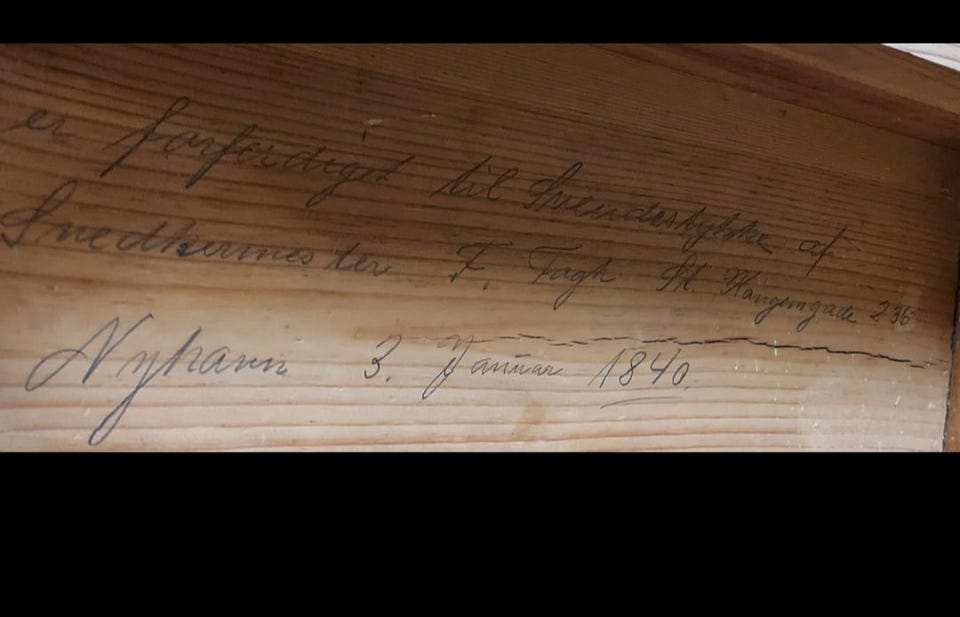 er forferdiget til Svendestykke af
Snedkermester F. Fagh St. Kongensgade 236
Nyhavn 3. Januar 1840.